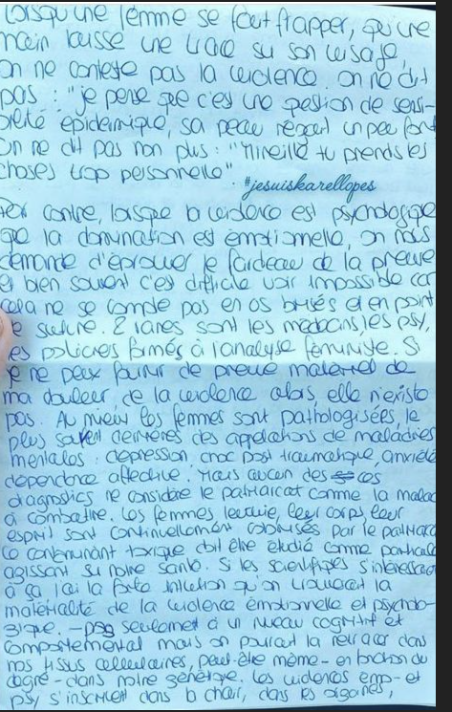 Lorsqu'une femme se fait frapper, qu'une
main laisse une trace su son visage,
on ne conteste pas la violence. On ne dit
pas : "je pense que c'est une question de sensi-
bilité épidermique, sa peau réagit un peu fort
On ne dit pas non plus : "Mireille tu prends les
choses trop personnelle"
#jesuiskarellopes
Par contre, lorsque la violence est psychologique
que la domination est émotionnelle, on nous
demande d'éprouver le fardeau de la preuve
et bien souvent c'est difficile voir impossible car
cela ne se compte pas en os brisés et en point
de suture. Rares sont les médecins, les psy,
les policiers formés à l'analyse féministe. Si
je ne peux fournir de preuve matériel de
ma douleur, de la violence alors, elle n'existe
pas. Au mieux les femmes sont pathologisées, le
plus souvent derrières des appelations de maladies
mentales : depression, choc post traumatique, anxiété
dépendance affective. Mais aucun des ces
diagnostics ne considère le patriarcat comme la malad
à combattre. Les femmes, leur vie, leur corps leur
esprit sont continuellement colonisés par le patriarca
Ce contaminant toxique doit être étudié comme
agissant su notre santé. Si les scientifiques s'interessai
à ça j'ai la forte intuition qu'on trouverait la
matérialité de la violence émotionnelle et psycho-
gique. - pas seulement à un niveau cognitif et
comportemental mais on pourrait la retracer dans
nos tissus cellulaires, peut-être même - en fonction du
degré - dans notre génétique. Les violences emo- et
psy, s'inscrivent dans la chair, dans les organes,